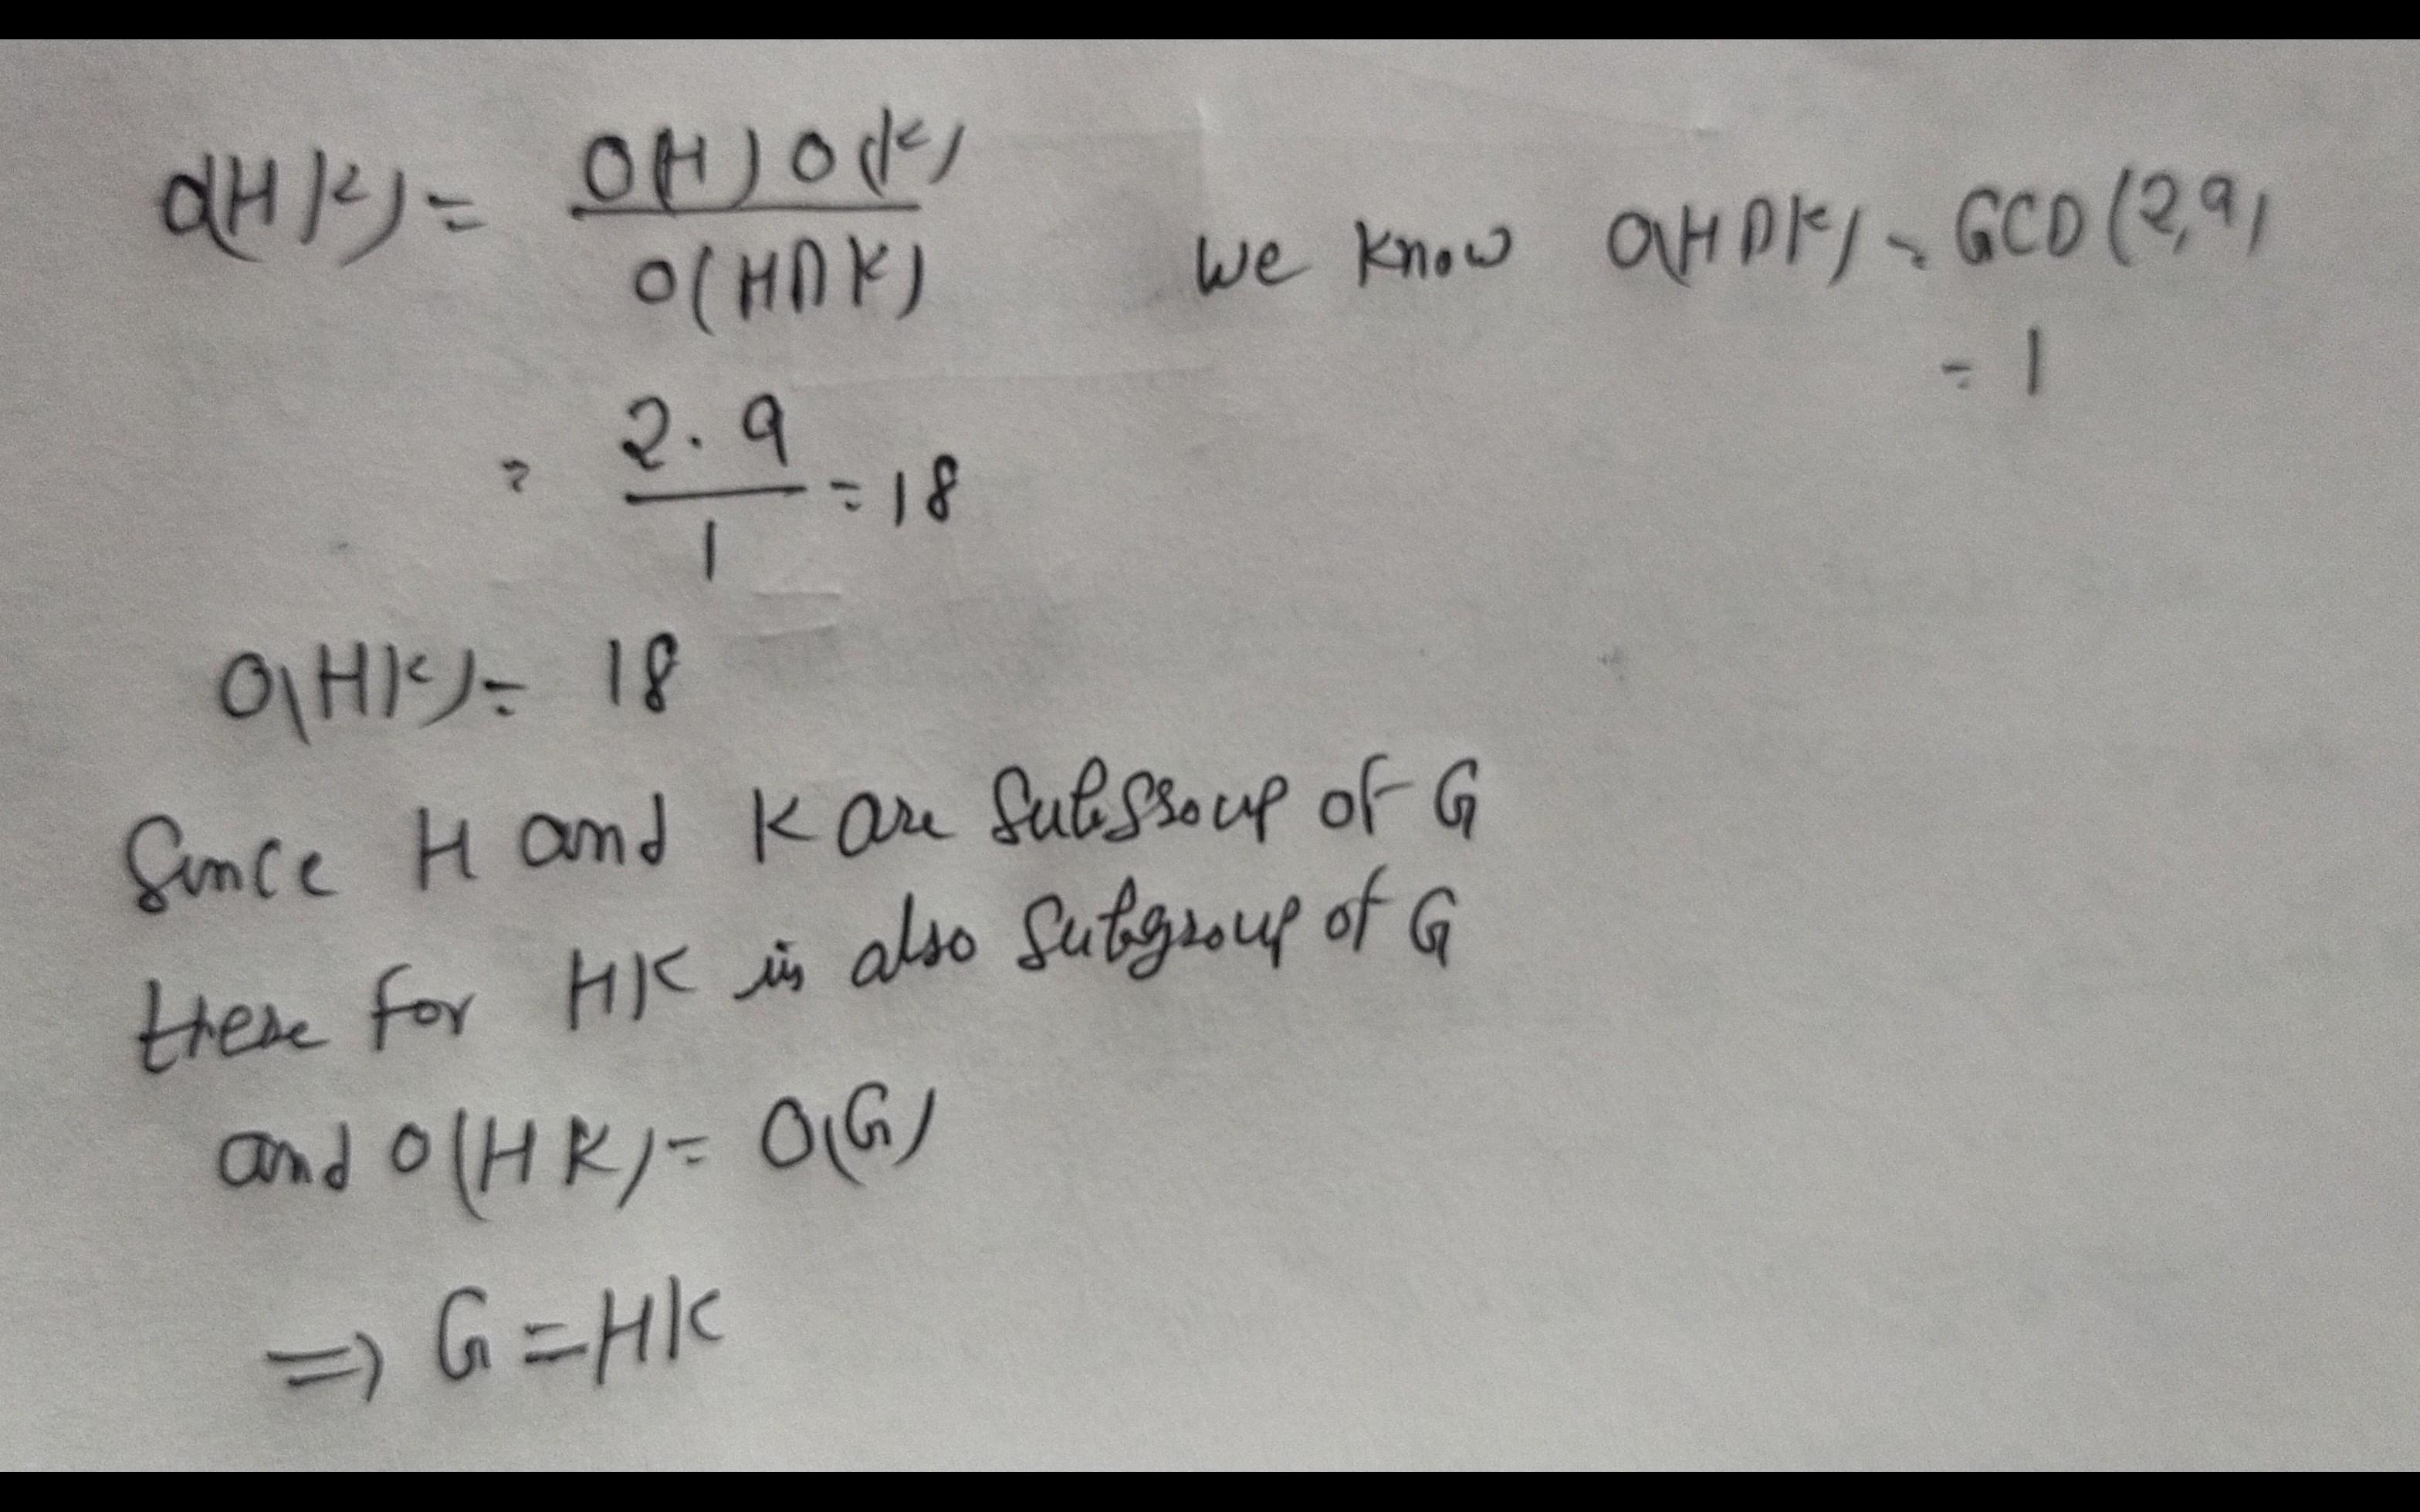 O(HK) = O(H) O(K) / O(H∩K) we know O(H∩K) = GCD(2,9)
= 1
= 2.9 / 1 = 18
O(HK) = 18
Since H and K are subgroup of G
there for HK is also subgroup of G
and O(HK) = O(G)
⇒ G = HK